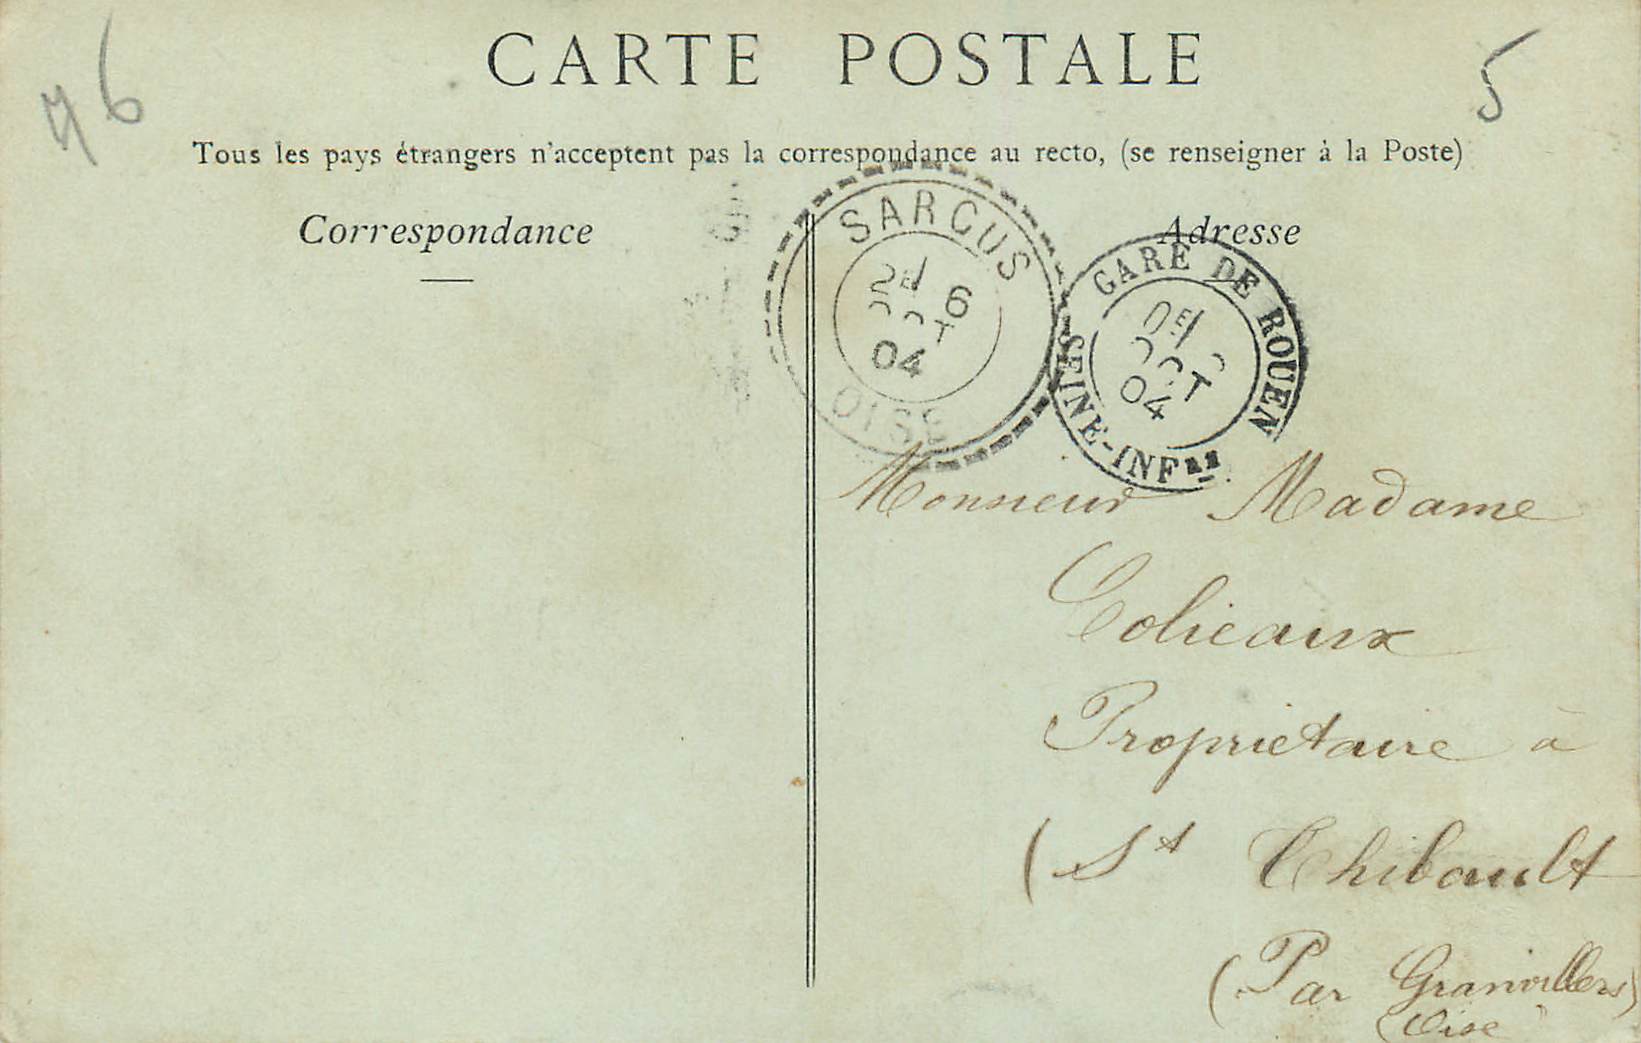 CARTE POSTALE
76
5
Tous les pays étrangers n'acceptent pas la correspondance au recto, (se renseigner à la Poste)
Correspondance
Adresse
SARCUS
2E 6
OCT
04
OISE
GARE DE ROUEN
OCT
04
SEINE-INFRE
Monsieur Madame
Colieaux
Proprietaire à
(St Thibault
(Par Granvillers)
(Oise